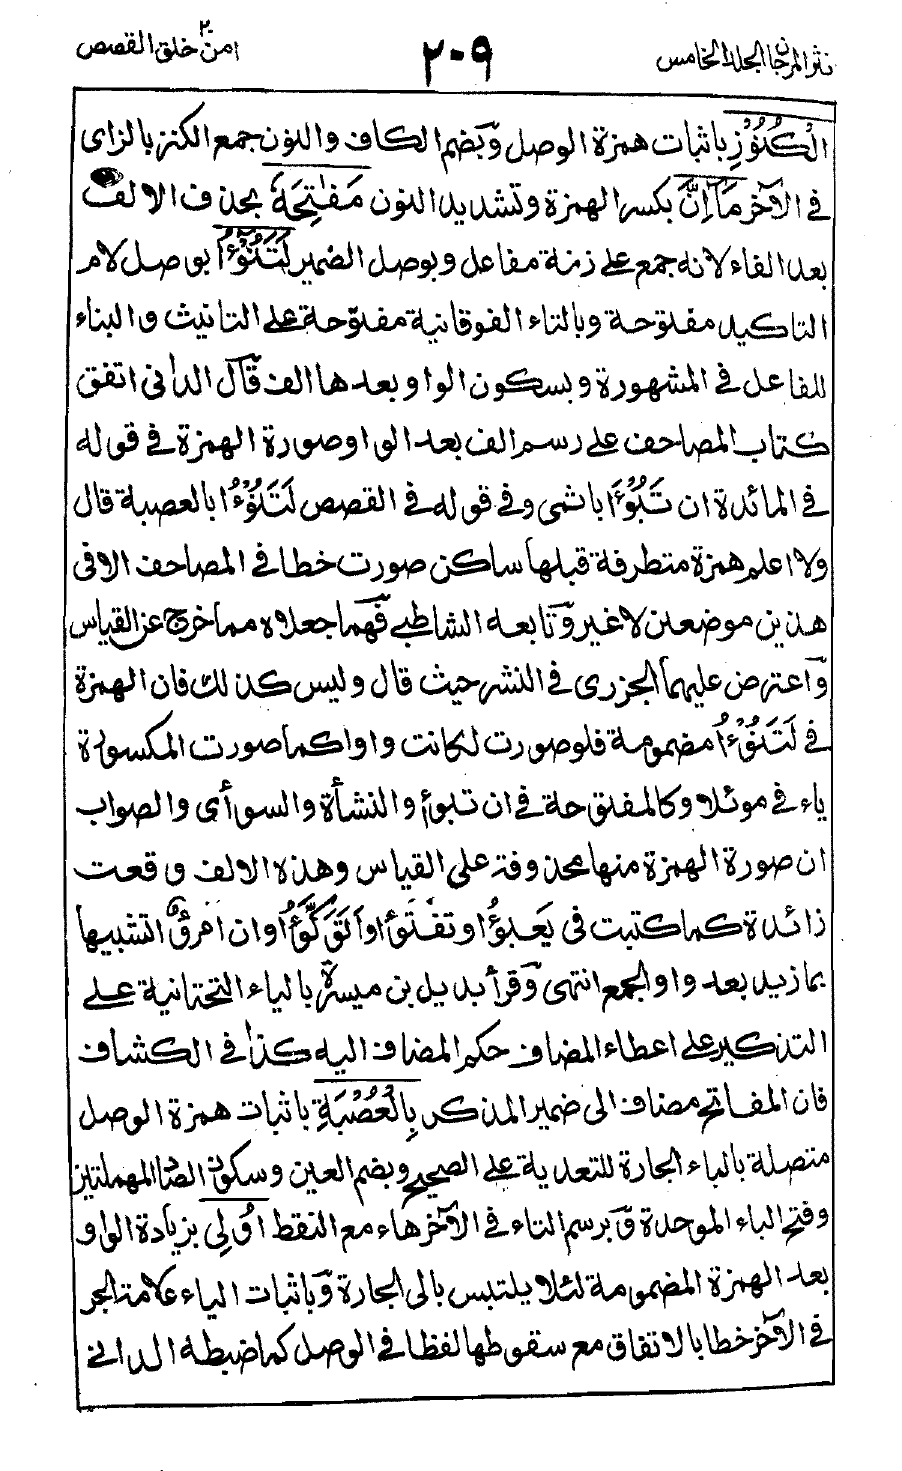 نثر المرجان المجلد الخامس
٢٠٩
امن خلق ٢٠ القصص
الْكُنُوْزِ باثبات همزة الوصل وبضم الكاف والنون جمع الكنز بالزاى
فى الآخر مَآ اِنَّ بكسر الهمزة وتشديد النون مَفٰتِحَهٗ بحذف الالف
بعد الفاء لانه جمع على زنة مفاعل وبوصل الضمير لَتَنُوْٓءُا بوصل لام
التاكيد مفتوحة وبالتاء الفوقانية مفتوحة على التانيث والبناء
للفاعل فى المشهورة وبسكون الواو بعدها الف قال الدانى اتفق
كتاب المصاحف على رسم الف بعد الواو صورة الهمزة فى قوله
فى المائدة ان تَبُوْءَا باثمى وفى قوله فى القصص لَتَنُوْءُا بالعصبة قال
ولا اعلم همزة متطرفة قبلها ساكن صورت خطا فى المصاحف الا فى
هذين موضعين لا غير وتابعه الشاطبى فهما جعلاه مما خرج عن القياس
واعترض عليهما الجزرى فى النشر حيث قال وليس كذلك فان الهمزة
فى لَتَنُوْءُا مضمومة فلو صورت لكانت واوا كما صورت المكسورة
ياء فى موئلا وكالمفتوحة فى ان تبوأ والنشأة والسوأى والصواب
ان صورة الهمزة منها محذوفة على القياس وهذه الالف وقعت
زائدة كما كتبت فى يَعْبَؤُا وتفتؤا واَتَوَكَّؤُا وان امرؤا لتشبيها
بما زيد بعد واو الجمع انتهى وقرأ بديل بن ميسرة بالياء التحتانية على
التذكير على اعطاء المضاف حكم المضاف اليه كذا فى الكشاف
فان المفاتح مضاف الى ضمير المذكر بِالْعُصْبَةِ باثبات همزة الوصل
متصلة بالباء الجارة للتعدية على الصحيح وبضم العين وسكون الصاد المهملتين
وفتح الباء الموحدة وبرسم التاء فى الآخر هاء مع النقط اُولِى بزيادة الواو
بعد الهمزة المضمومة لئلا يلتبس بالى الجارة وباثبات الياء علامة الجر
فى الآخر خطا بالاتفاق مع سقوطها لفظا فى الوصل كما ضبطه الدانى